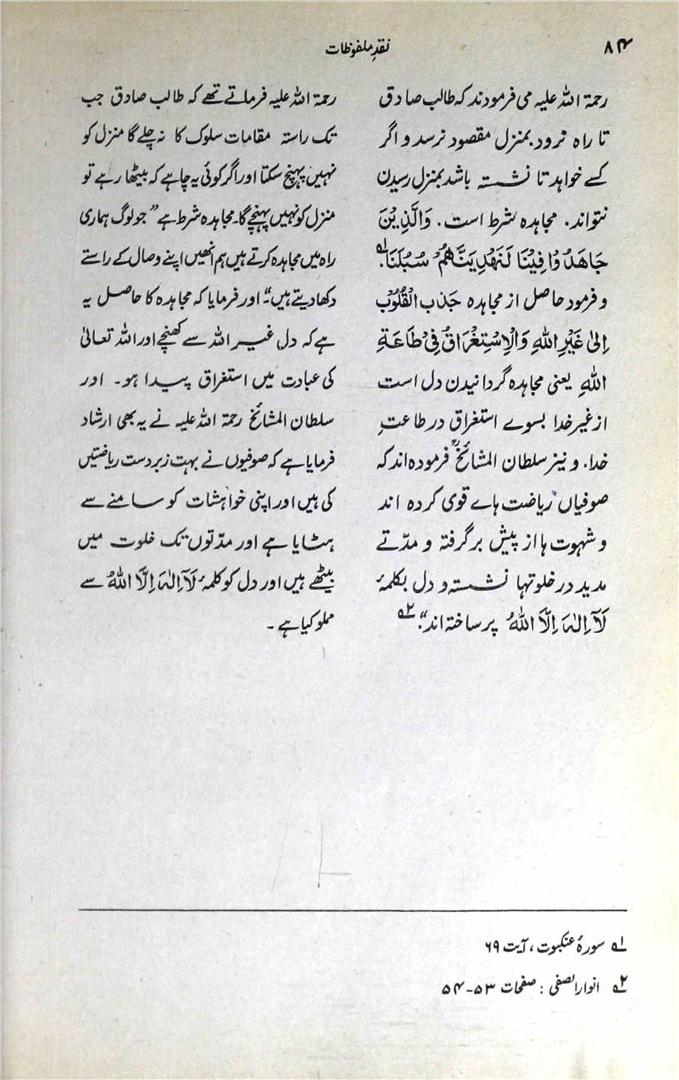 ۸۴
نقدِ ملفوظات
رحمۃ اللہ علیہ می فرمودند کہ طالب صادق
تا راہ نرود بمنزل مقصود نرسد و اگر
کسے خواہد تا نشستہ باشد بمنزل رسیدن
نتواند۔ مجاہدہ شرط است۔ وَالَّذِیْنَ
جَاهَدُوْا فِیْنَا لَنَهْدِیَنَّهُمْ سُبُلَنَا۔ ؂۱
و فرمود حاصل از مجاہدہ جَذبُ القُلُوْبِ
اِلیٰ غَیْرِ اللّٰهِ وَالْاِسْتِغْرَاقُ فِیْ طَاعَةِ
اللّٰهِ یعنی مجاہدہ گردانیدن دل است
از غیر خدا بسوے استغراق در طاعتِ
خدا۔ و نیز سلطان المشائخؒ فرمودہ اند کہ
صوفیاں ریاضت ہاے قوی کردہ اند
و شہوت ہا از پیش بر گرفتہ و مدّتے
مدید در خلوتہا نشستہ و دل بکلمۂ
لَآ اِلٰہَ اِلَّا اللّٰہُ پر ساختہ اند"۔ ؂۲
رحمۃ اللہ علیہ فرماتے تھے کہ طالب صادق جب
تک راستہ مقامات سلوک کا نہ چلے گا منزل کو
نہیں پہنچ سکتا اور اگر کوئی یہ چاہے کہ بیٹھا رہے تو
منزل کو نہیں پہنچے گا۔ مجاہدہ شرط ہے "جو لوگ ہماری
راہ میں مجاہدہ کرتے ہیں ہم انھیں اپنے وصال کے راستے
دکھا دیتے ہیں"۔ اور فرمایا کہ مجاہدہ کا حاصل یہ
ہے کہ دل غیر اللہ سے کھنچے اور اللہ تعالیٰ
کی عبادت میں استغراق پیدا ہو۔ اور
سلطان المشائخ رحمۃ اللہ علیہ نے یہ بھی ارشاد
فرمایا ہے کہ صوفیوں نے بہت زبردست ریاضتیں
کی ہیں اور اپنی خواہشات کو سامنے سے
ہٹایا ہے اور مدّتوں تک خلوت میں
بیٹھے ہیں اور دل کو کلمۂ لَآ اِلٰہَ اِلَّا اللّٰہُ سے
مملو کیا ہے۔
؂۱ سورۂ عنکبوت، آیت ۶۹
؂۲ انوار الصفی: صفحات ۵۳-۵۴